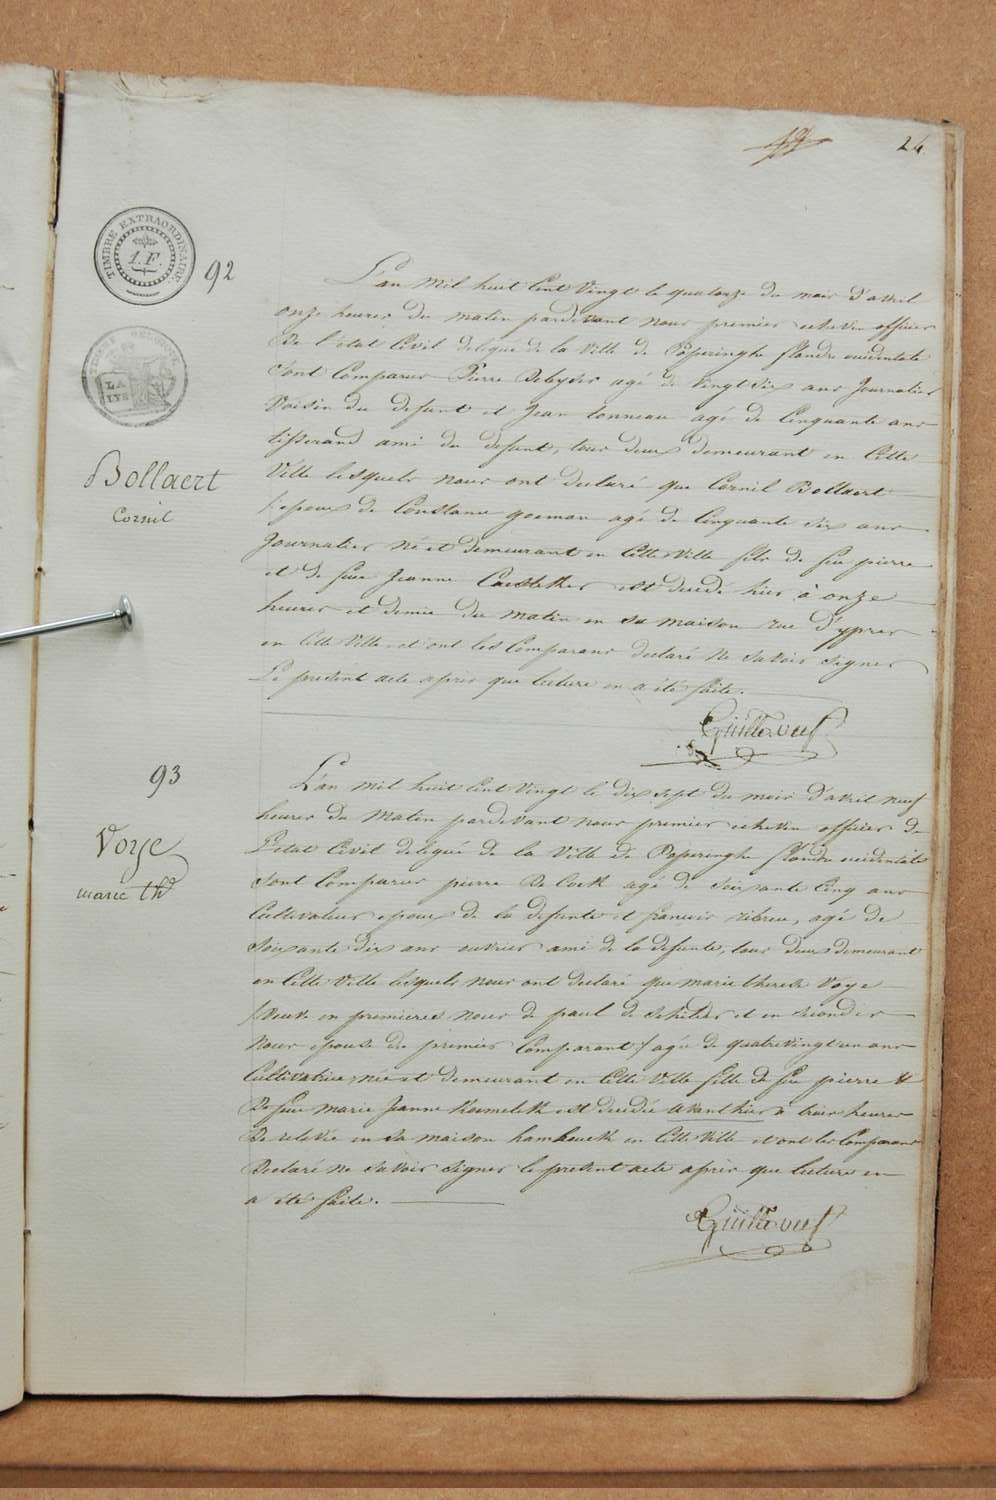 24
TIMBRE EXTRAORDINAIRE
1. F.
LA LYS
92
Bollaert
Cornil
L'an mil huit cent vingt le quatorze du mois d'avril
onze heures du matin pardevant nous premier echevin officier
De l'état Civil delegué de la Ville de Poperinghe flandre occidentale
Sont Comparus Pierre Debyser agé de vingt six ans Journalier
Voisin du defunt et Jean tonneau agé de Cinquante ans
tisserand ami du defunt, tous deux demeurant en Cette
Ville lesquels nous ont declaré que Cornil Bollaert
epoux de Constance goeman agé de Cinquante six ans
Journalier né et demeurant en Cette Ville fils de feu pierre
et de feue Jeanne est decedé hier à onze
heures et demie du matin en sa maison rue d'ypres
en Cette Ville, et ont les Comparans declaré ne savoir signer
Le présent acte après que lecture en a été faite.
93
Voye
marie th
L'an mil huit Cent vingt le dix sept du mois d'avril neuf
heures du matin pardevant nous premier echevin officier de
l'etat Civil delegué de la Ville de Poperinghe flandre occidentale
Sont Comparus pierre De Cock agé de soixante Cinq ans
Cultivateur epoux de la defunte et francois agé de
soixante dix ans ouvrier ami de la defunte, tous deux demeurant
en Cette Ville lesquels nous ont declaré que marie therese Voye
(Veuve en premieres noces de paul de et en secondes
Noces epouse du premier Comparant) agée de quatrevingt un ans
Cultivatrice, née et demeurant en Cette Ville fille de feu pierre &
De feue marie Jeanne est decedée avant hier à trois heures
De relevée en sa maison en Cette Ville et ont les Comparans
Declaré ne savoir signer le présent acte après que lecture en
a été faite.